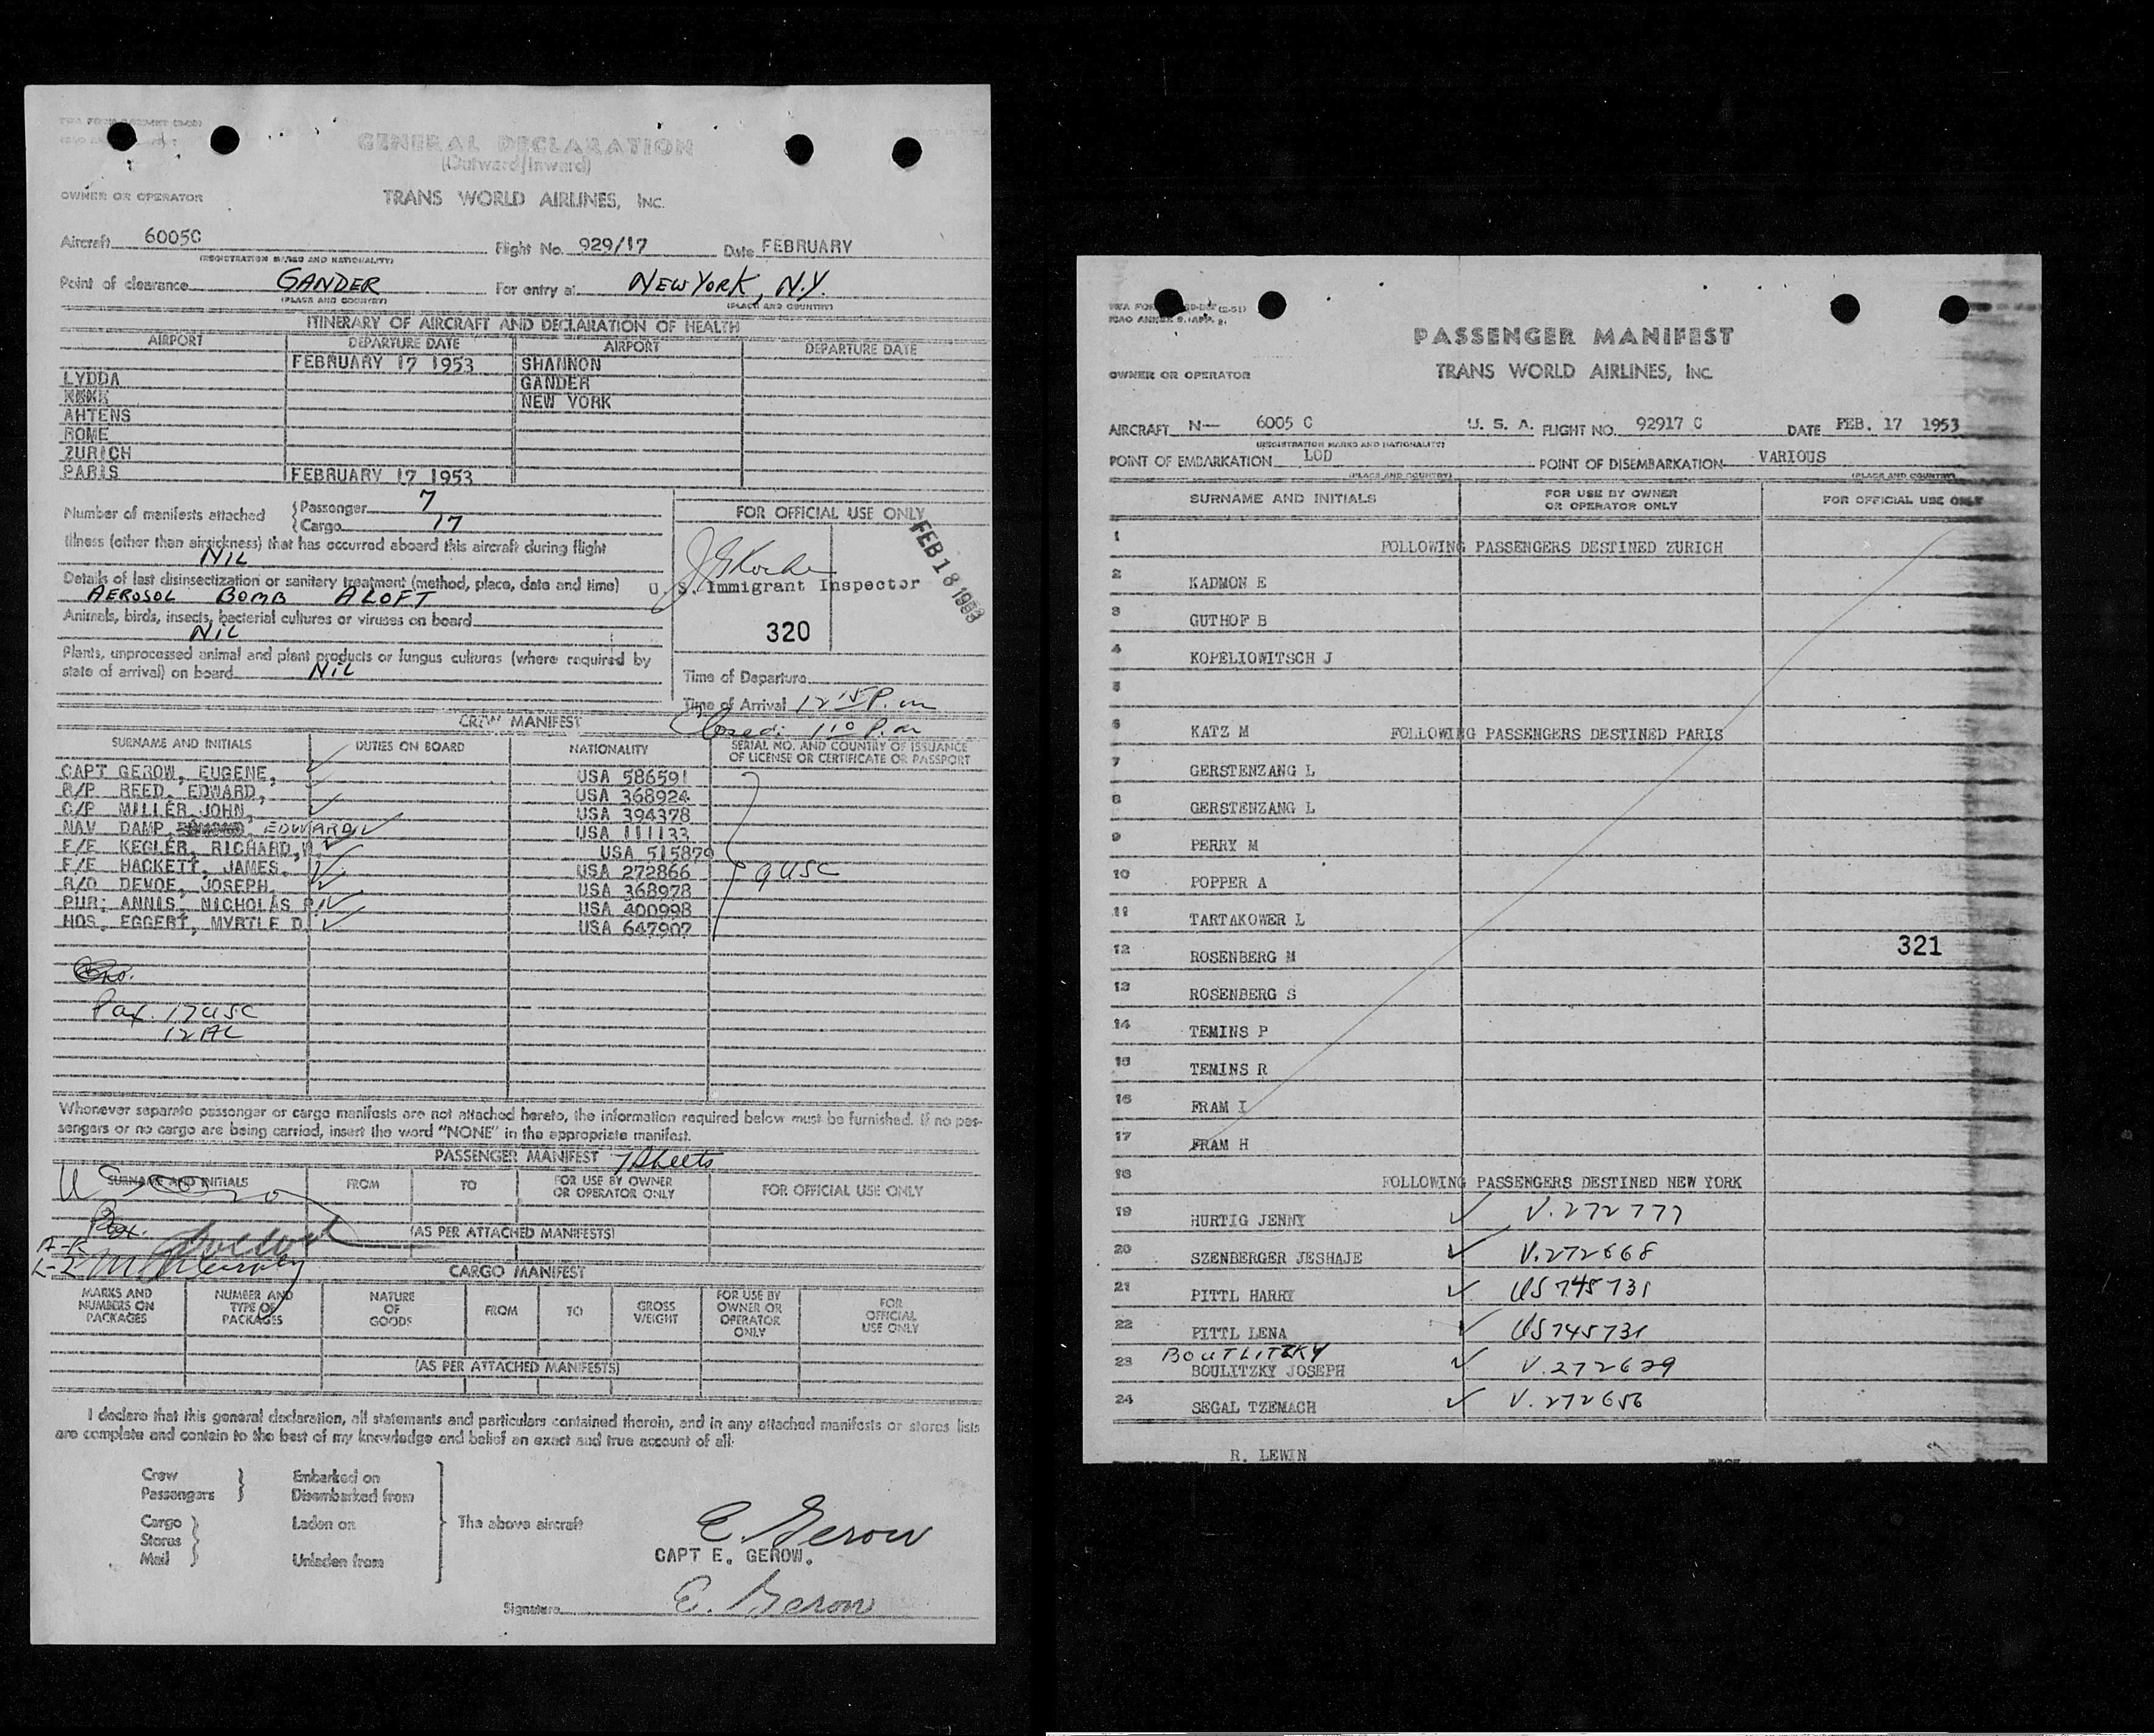 GENERAL DECLARATION
(Outward/Inward)
OWNER OR OPERATOR TRANS WORLD AIRLINES, INC.
Aircraft 6005C Flight No. 929/17 Date FEBRUARY
(REGISTRATION MARKS AND NATIONALITY)
Point of clearance GANDER For entry at NEW YORK, N.Y.
(PLACE AND COUNTRY) (PLACE AND COUNTRY)
ITINERARY OF AIRCRAFT AND DECLARATION OF HEALTH
AIRPORT DEPARTURE DATE AIRPORT DEPARTURE DATE
FEBRUARY 17 1953 SHANNON
LYDDA GANDER
NEW YORK
AHTENS
ROME
ZURICH
PARIS FEBRUARY 17 1953
Number of manifests attached { Passenger 7
{ Cargo 17
FOR OFFICIAL USE ONLY
FEB 18 1953
Illness (other than airsickness) that has occurred aboard this aircraft during flight
NIL
Details of last disinsectization or sanitary treatment (method, place, date and time)
AEROSOL BOMB ALOFT
U. S. Immigrant Inspector
Animals, birds, insects, bacterial cultures or viruses on board
NIL
320
Plants, unprocessed animal and plant products or fungus cultures (where required by
state of arrival) on board NIL
Time of Departure
Time of Arrival 12 15 P.m
Closed: 1 10 P.m
CREW MANIFEST
SURNAME AND INITIALS DUTIES ON BOARD NATIONALITY SERIAL NO. AND COUNTRY OF ISSUANCE
OF LICENSE OR CERTIFICATE OR PASSPORT
CAPT GEROW, EUGENE, USA 586591
R/P REED, EDWARD, USA 368924
C/P MILLER, JOHN, USA 394378
NAV DAMP, EDWARD USA 111133
F/E KEGLER, RICHARD, W. USA 515879
F/E HACKETT, JAMES. USA 272866 9 USC
R/O DEVOE, JOSEPH. USA 368978
PUR; ANNIS, NICHOLAS P. USA 400998
HOS, EGGERT, MYRTLE D. USA 647907
Pax. 17 USC
12 AL
Whenever separate passenger or cargo manifests are not attached hereto, the information required below must be furnished. If no pas-
sengers or no cargo are being carried, insert the word "NONE" in the appropriate manifest.
PASSENGER MANIFEST 7 Sheets
SURNAME AND INITIALS FROM TO FOR USE BY OWNER
OR OPERATOR ONLY FOR OFFICIAL USE ONLY
(AS PER ATTACHED MANIFESTS)
CARGO MANIFEST
MARKS AND
NUMBERS ON
PACKAGES NUMBER AND
TYPE OF
PACKAGES NATURE
OF
GOODS FROM TO GROSS
WEIGHT FOR USE BY
OWNER OR
OPERATOR
ONLY FOR
OFFICIAL
USE ONLY
(AS PER ATTACHED MANIFESTS)
I declare that this general declaration, all statements and particulars contained therein, and in any attached manifests or stores lists
are complete and contain to the best of my knowledge and belief an exact and true account of all:
Crew } Embarked on
Passengers } Disembarked from
Cargo } Laden on The above aircraft
Stores }
Mail } Unladen from
E. Gerow
CAPT E. GEROW.
Signature E. Gerow
PASSENGER MANIFEST
OWNER OR OPERATOR TRANS WORLD AIRLINES, INC.
AIRCRAFT N- 6005 C U. S. A. FLIGHT NO. 92917 C DATE FEB. 17 1953
(REGISTRATION MARKS AND NATIONALITY)
POINT OF EMBARKATION LOD POINT OF DISEMBARKATION VARIOUS
(PLACE AND COUNTRY) (PLACE AND COUNTRY)
SURNAME AND INITIALS FOR USE BY OWNER
OR OPERATOR ONLY FOR OFFICIAL USE ONLY
1 FOLLOWING PASSENGERS DESTINED ZURICH
2 KADMON E
3 GUTHOF B
4 KOPELIOWITSCH J
5
6 KATZ M FOLLOWING PASSENGERS DESTINED PARIS
7 GERSTENZANG L
8 GERSTENZANG L
9 PERRY M
10 POPPER A
11 TARTAKOWER L
12 ROSENBERG M 321
13 ROSENBERG S
14 TEMINS P
15 TEMINS R
16 FRAM I
17 FRAM H
18 FOLLOWING PASSENGERS DESTINED NEW YORK
19 HURTIG JENNY V.272777
20 SZENBERGER JESHAJE V.272668
21 PITTL HARRY US 745731
22 PITTL LENA US 745731
BOUTLITZKY
23 BOULITZKY JOSEPH V.272629
24 SEGAL TZEMACH V.272656
R. LEWIN